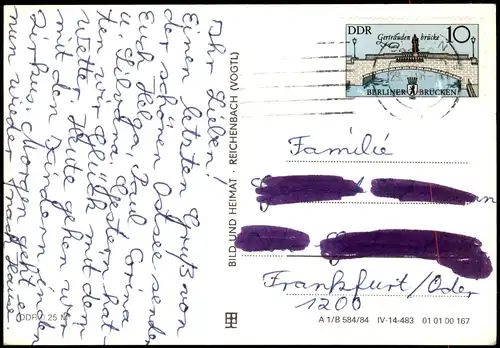 Ihr Lieben!
Einen letzten Gruß von
der schönen Ostsee senden
Euch Helga, Paul, Corina
u. Silvana. Gestern hat-
ten wir Glück mit dem
Wetter. Heute gehen wir
mit den Kindern in den
Zirkus. Morgen geht es
nun wieder nach Hause.
DDR 25 M
BILD UND HEIMAT · REICHENBACH (VOGTL)
DDR Gertraudenbrücke 10
BERLINER BRÜCKEN
Familie
Frankfurt/Oder
1200
A 1/B 584/84 IV-14-483 01 01 00 167